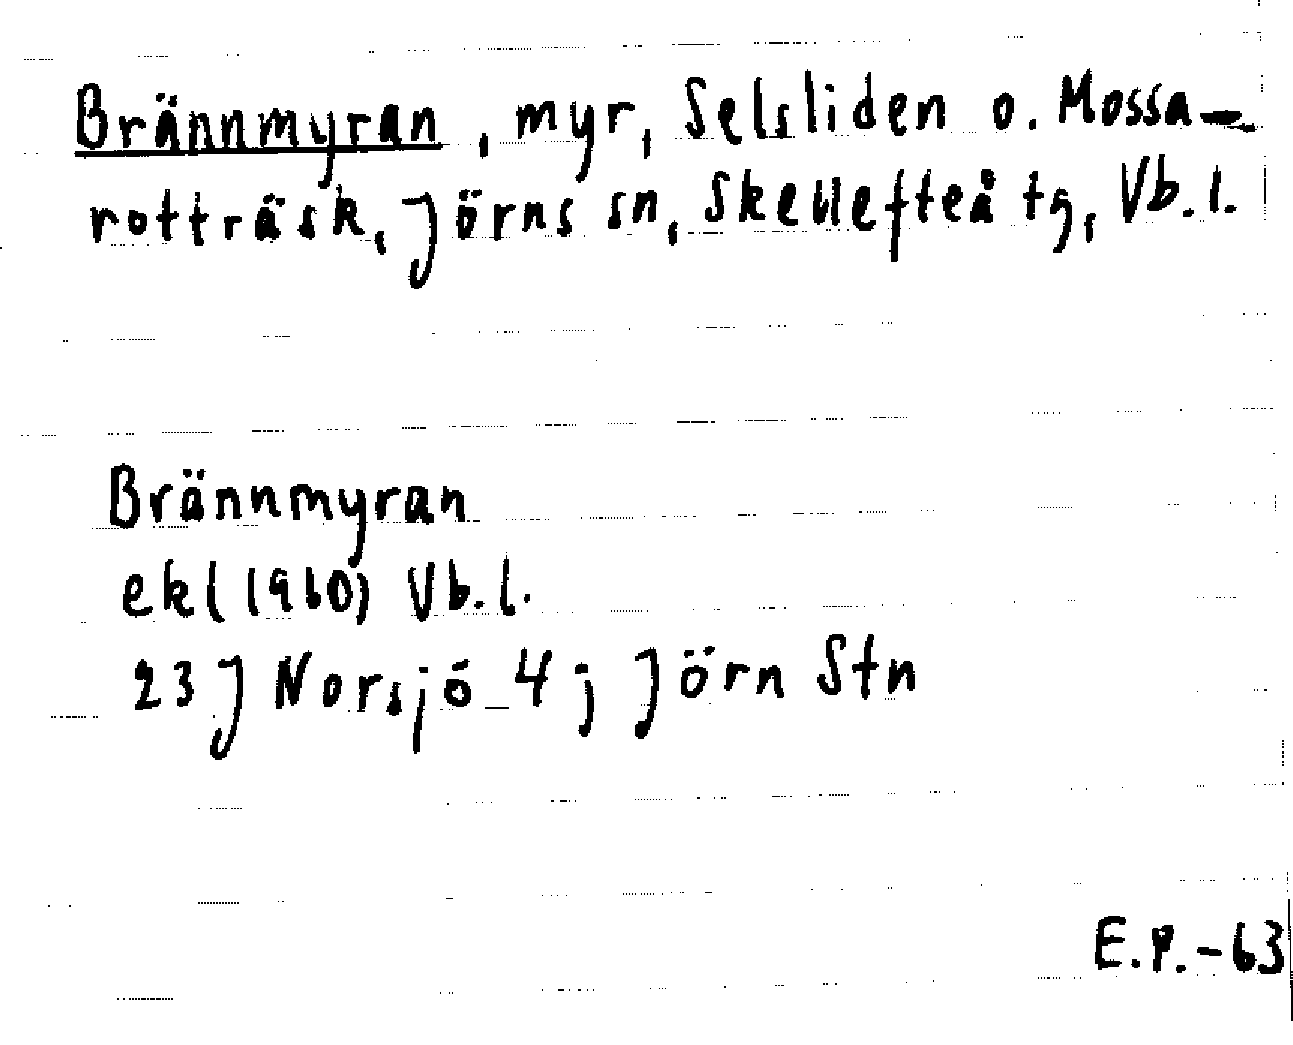 Brännmyran, myr, Selsliden o. Mossa-
rotträsk, Jörns sn, Skellefteå tg, Vb. l.
Brännmyran
ekl (1960) Vb. l.
23 J Norsjö 4 ; Jörn Stn
E.P.-63